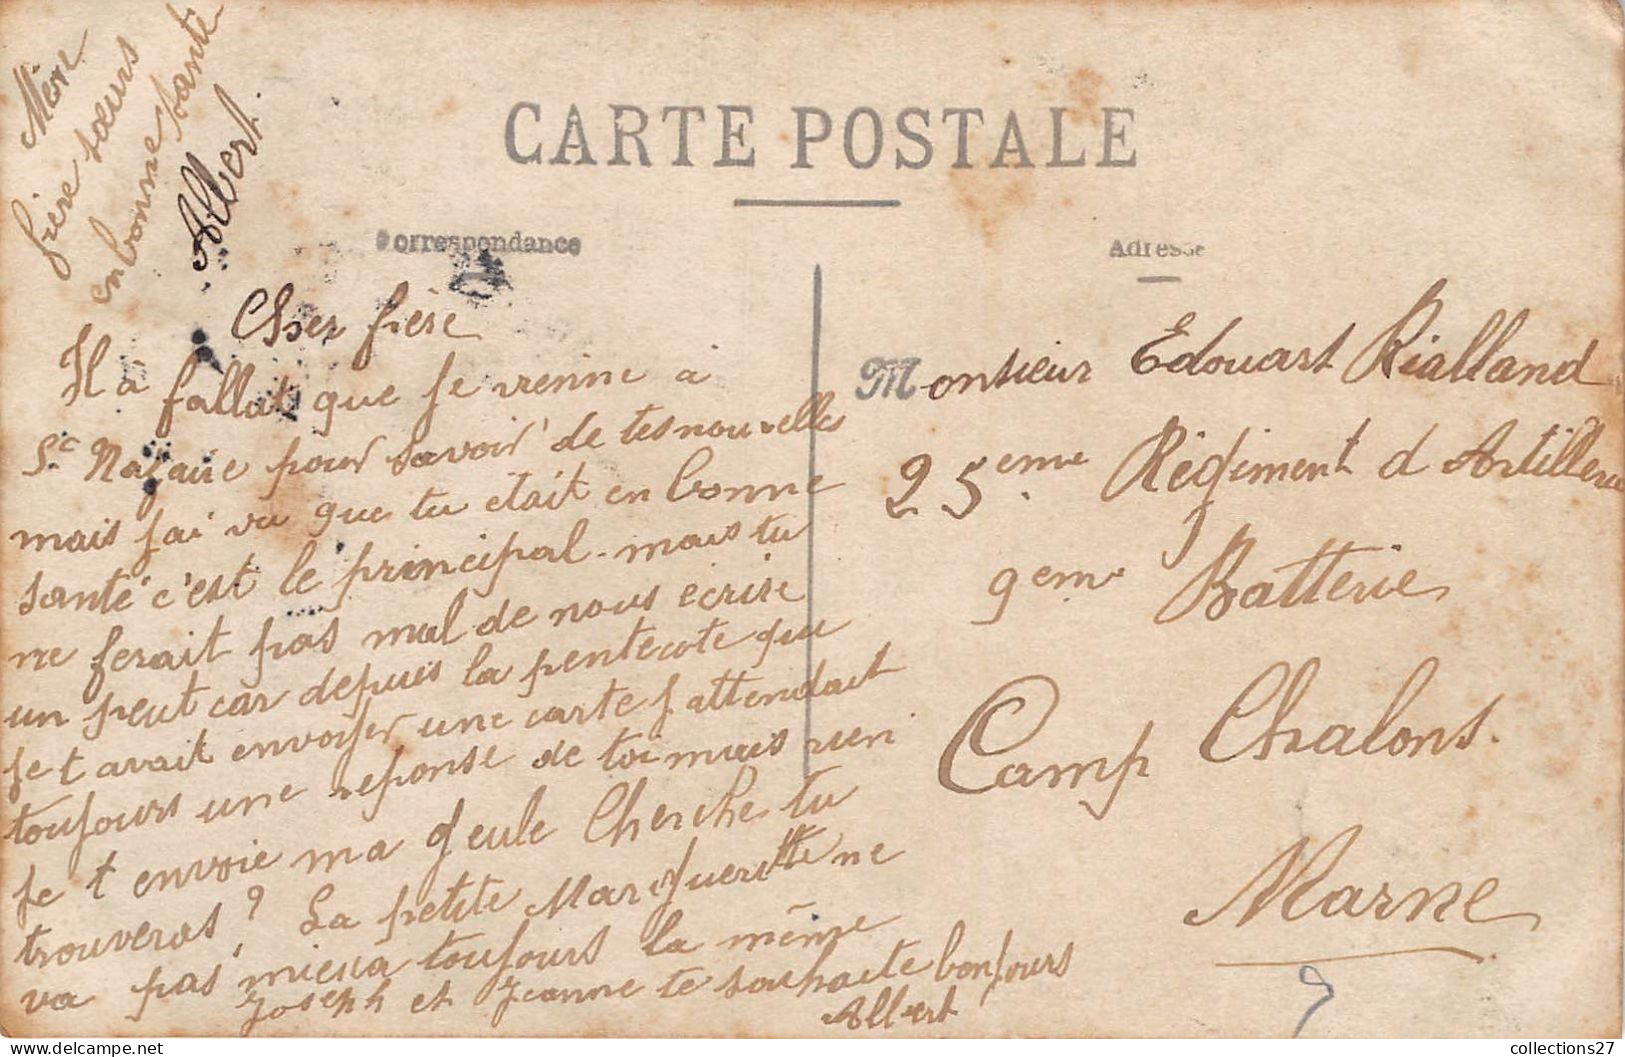 Mère
frère sœurs
en bonne sante
Albert
CARTE POSTALE
Correspondance
Adresse
Cher frère
Il à fallut que je vienne à
St Nazaire pour savoir de tes nouvelles
mais j'ai vu que tu etait en bonne
santé c'est le principal. mais tu
ne ferait pas mal de nous ecrire
un peut car depuis la pentecote que
je t avait envoyer une carte j attendait
toujours une reponse de toi mais rien
je t envoie ma geule Cherche tu
trouveras ? La petite Margueritte ne
va pas mieux toujours la même
Joseph et Jeanne te souhaite bonjours
Albert
Monsieur Edouart Rialland
25eme Régiment d Artillerie
9eme Batterie
Camp Chalons.
Marne
9
collections27